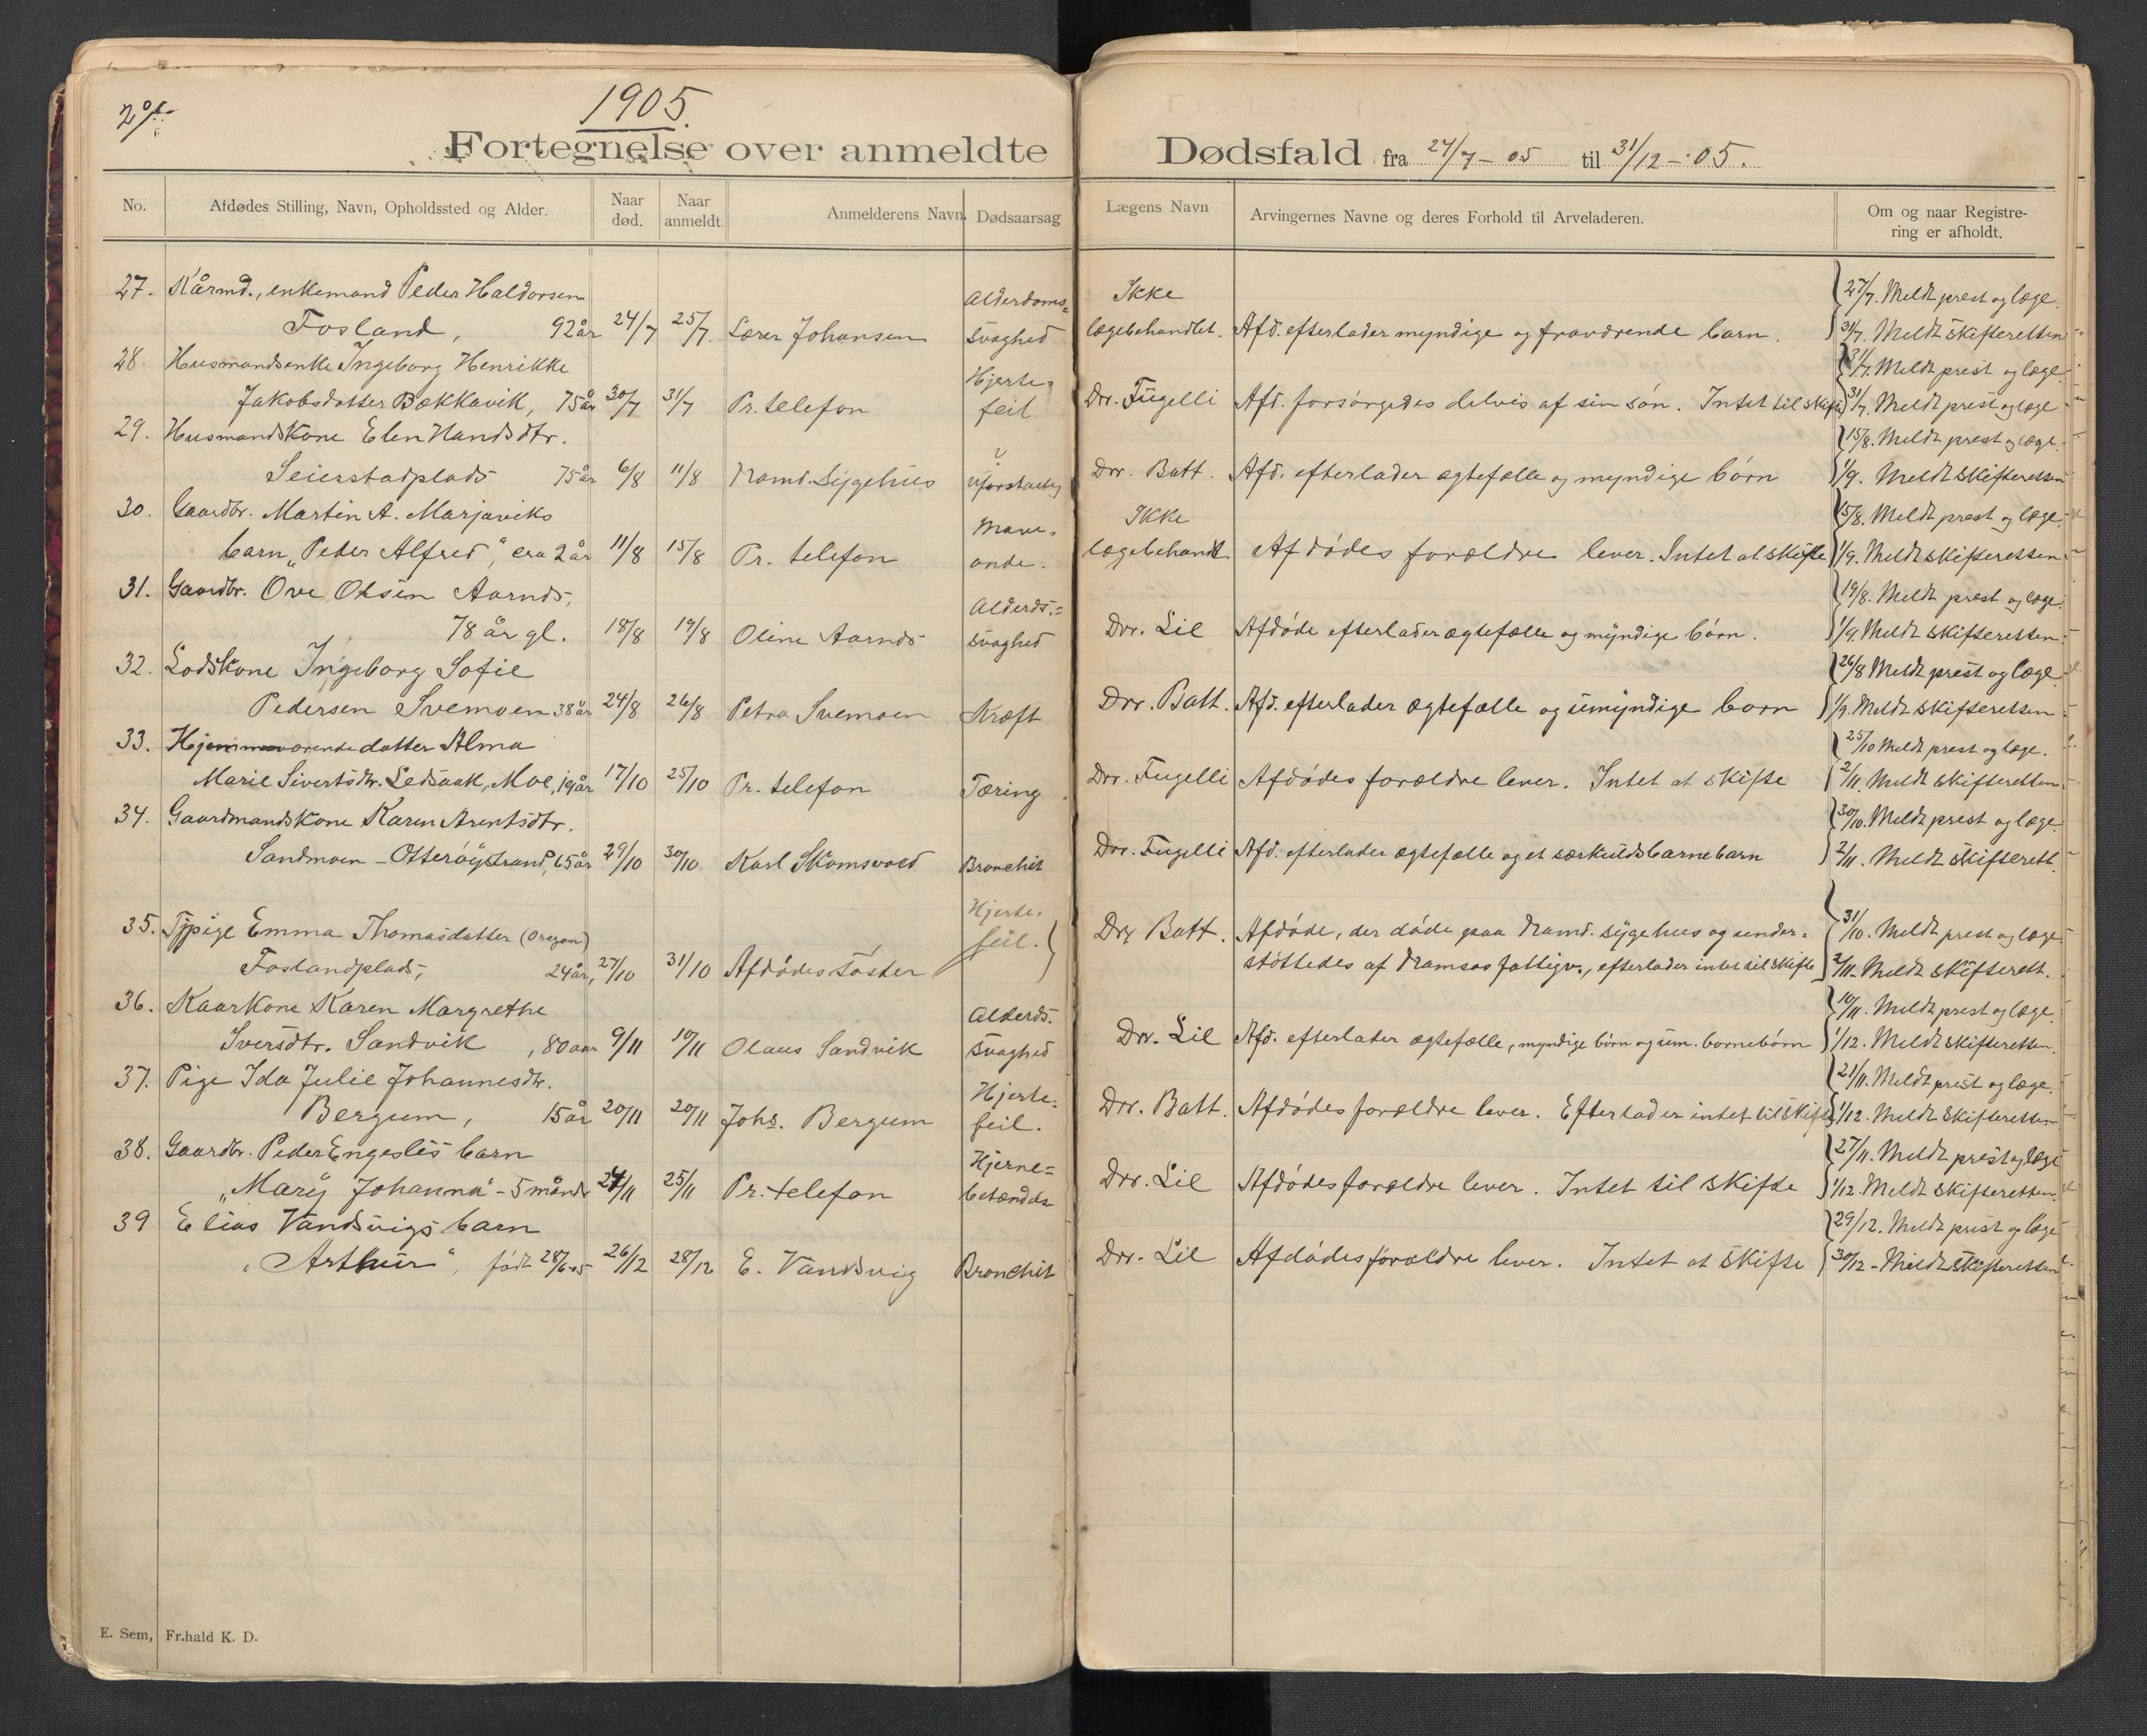 1905.
Fortegnelse over anmeldte Dødsfald fra 24/7 - 05 til 31/12 - 05.
No. Afdødes Stilling, Navn, Opholdssted og Alder. Naar død. Naar anmeldt. Anmelderens Navn. Dødsaarsag Lægens Navn Arvingernes Navne og deres Forhold til Arveladeren. Om og naar Registrering er afholdt.
27. Kårmd., enkemand Peder Haldorsen Alderdoms= Ikke 27/7. Meldt prest og læge.
Fosland, 92 år 24/7 25/7. Lærer Johansen svaghed lægebehandlet. Afd. efterlader myndige og fraværende barn. 31/7. Meldt skifteretten
28. Husmandsenke Ingeborg Henrikke Hjerte= 31/7. Meldt prest og læge.
Jakobsdatter Bækkavik, 75 år 30/7 31/7 Pr. telefon feil Dr. Fügelli Afd. forsørgedes delvis af sin søn. Intet til skifte 31/7. Meldt prest og læge
29. Husmandskone Elen Handsdtr. 15/8. Meldt prest og læge.
Seierstadplads 75 år 6/8 11/8 Namd. Sygehus Dr. Batt. Afd. efterlader ægtefælle og myndige børn 1/9. Meldt skifteretten
30. Gaardbr. Martin A. Marjaviks Mave- Ikke 15/8. Meldt prest og læge.
barn "Peder Alfred", cra 2 år 11/8 15/8 Pr. telefon onde. lægebehandl. Afdødes forældre lever. Intet at skifte 1/9. Meldt skifteretten
31. Gaardbr. Ove Olsen Aarnds, Alderds.= 19/8. Meldt prest og læge.
78 år gl. 18/8 19/8 Oline Aarnds svaghed Dr. Lil Afdøde efterlader ægtefælle og myndige børn. 1/9. Meldt skifteretten.
32. Lodskone Ingeborg Sofie 26/8 Meldt prest og læge.
Pedersen Svemoen 38 år 24/8 26/8 Petra Svemoen Kræft Dr. Batt. Afd. efterlader ægtefælle og umyndige born 1/9. Meldt skifteretten
33. Hjemmeværende datter Alma 25/10 Meldt prest og læge.
Marie Sivertsdtr. Ledsaak, Moe, 19 år 17/10 25/10 Pr. telefon Tæring Dr. Fugelli Afdødes forældre lever. Intet at skifte 2/11. Meldt skifteretten.
34. Gaardmandskone Karen Arentsdtr. 30/10. Meldt prest og læge.
Sandmoen - Otterøystrand, 65 år 29/10 30/10 Karl Skomsvold Bronchit Dr. Fügelli Afd. efterlader ægtefælle og et særkuldsbarnebarn 2/11. Meldt skifterett.
35. Tjpige Emma Thomasdatter (Oregon) Hjerte- feil. Dr. Batt. Afdøde, der døde paa Namd. sygehus og under- 31/10. Meldt prest og læge
Foslandplads, 24 år, 27/10 31/10 Afdødes søster støttedes af Namsos fattigv., efterlader intet til skifte 2/11. Meldt skifterett.
36. Kaarkone Karen Margrethe Alderds. 10/11. Meldt prest og læge.
Iversdtr. Sandvik, 80 aar 9/11 10/11 Olaus Sandvik svaghed Dr. Lil Afd. efterlader ægtefælle, myndige børn og um. barnebørn 1/12. Meldt skifteretten.
37. Pige Ida Julie Johannesdtr. Hjerte- 21/11. Meldt prest og læge.
Bergum, 15 år 20/11 20/11 Johs. Bergum feil. Dr. Batt. Afdødes forældre lever. Efterlader intet til skifte 1/12. Meldt skifteretten
38. Gaardbr. Peder Engeslis barn Hjerne= 27/11. Meldt prest og læge
"Mary Johanna" - 5 månd. 24/11 25/11 Pr. telefon betændelse Dr. Lil Afdødes forældre lever. Intet til skifte 1/12. Meldt skifteretten.
39 Elias Vandsvigs barn 29/12. Meldt prest og læge
"Arthur", født 28/6-05 26/12 28/12 E. Vandsvig Bronchit Dr. Lil Afdødes forældre lever. Intet at skifte 30/12 - Meldt skifteretten
E. Sem, Fr.hald K. D.